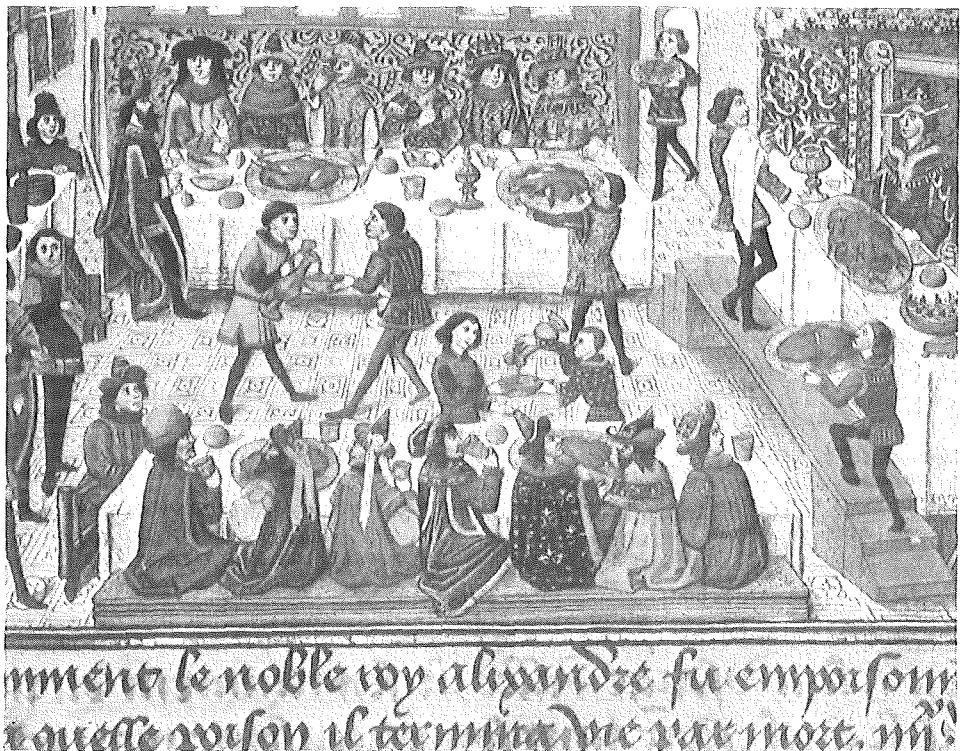 mment le noble roy alixandre fu empoisonn
quelle poison il termina par mort